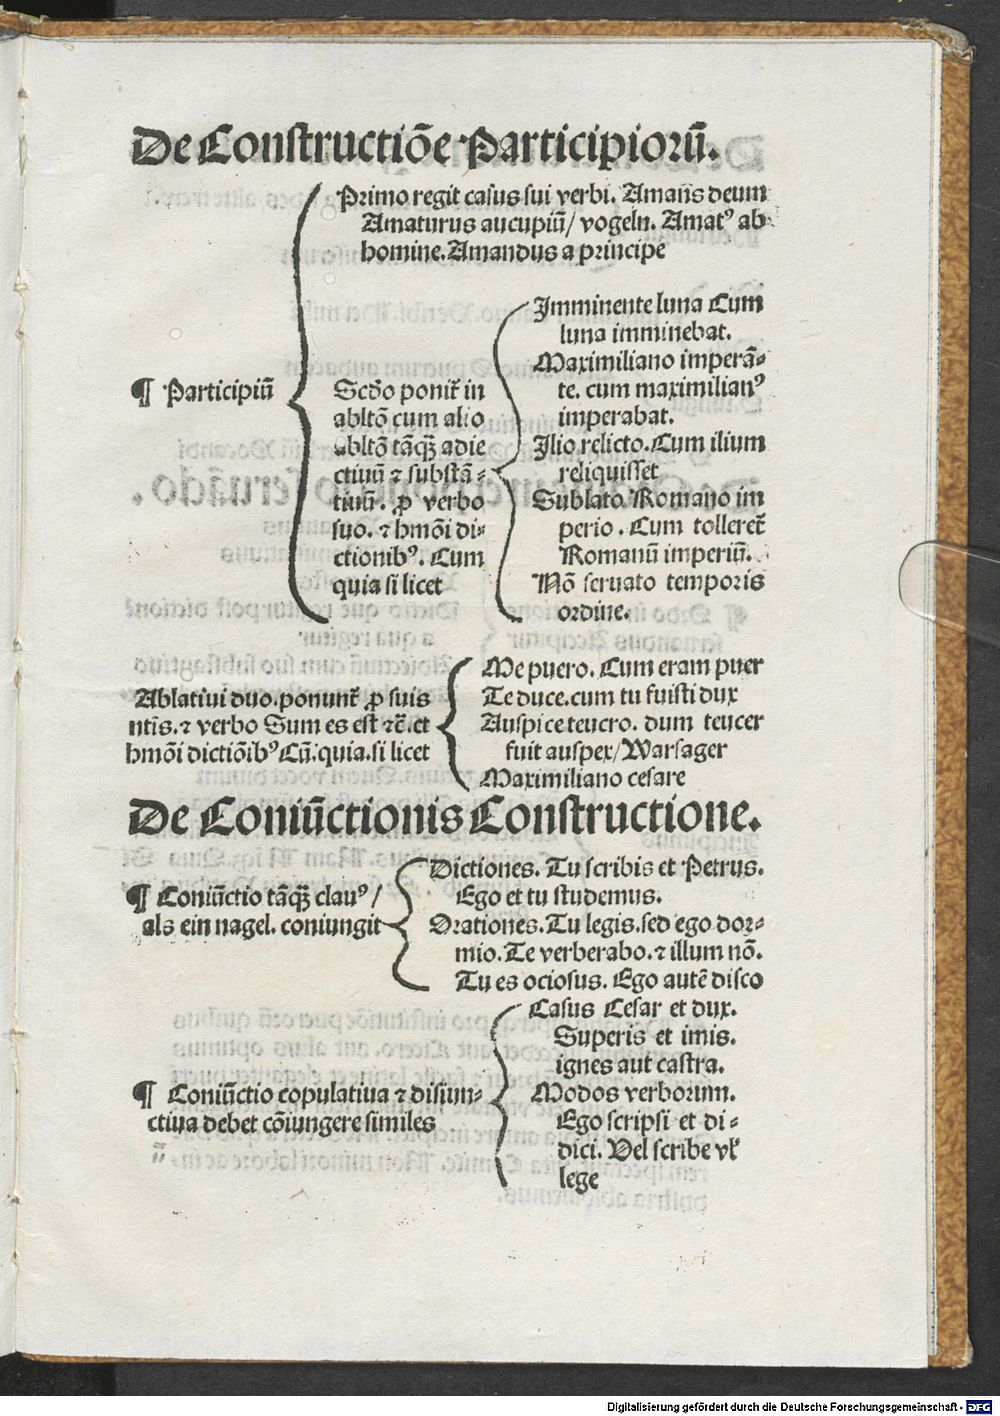 De Constructiõe Participiorũ.
Primo regit casus sui verbi. Amañs deum
Amaturus aucupiũ/ vogeln. Amatꝰ ab
homine. Amandus a principe
¶ Participiũ
Scd́o ponit̃ in
abltõ cum alio
abltõ tãqꝫ adie
ctiuũ ⁊ substã⸗
tiuũ. ꝓ verbo
suo. ⁊ hmõi di⸗
ctionibꝰ. Cum
quia si licet
Imminente luna Cum
luna imminebat.
Maximiliano imperã⸗
te. cum maximilianꝰ
imperabat.
Ilio relicto. Cum ilium
reliquisset
Sublato Romano im
perio. Cum tolleret̃
Romanũ imperiũ.
Nõ seruato temporis
ordine.
Ablatiui duo. ponunt̃ ꝓ suis
ntĩs. ⁊ verbo Sum es est ⁊c̃. et
hmõi dictiõibꝰ Cũ. quia. si licet
Me puero. Cum eram puer
Te duce. cum tu fuisti dux
Auspice teucro. dum teucer
fuit auspex/ Warsager
Maximiliano cesare
De Coniũctionis Constructione.
¶ Coniũctio tãqꝫ clauꝰ/
als ein nagel. coniungit
Dictiones. Tu scribis et Petrus.
Ego et tu studemus.
Orationes. Tu legis. sed ego dor⸗
mio. Te verberabo. ⁊ illum nõ.
Tu es ociosus. Ego autẽ disco
¶ Coniũctio copulatiua ⁊ disiun⸗
ctiua debet cõiungere similes
Casus Cesar et dux.
Superis et imis.
ignes aut castra.
Modos verborum.
Ego scripsi et di⸗
dici. Vel scribe vꝉ
lege
Digitalisierung gefördert durch die Deutsche Forschungsgemeinschaft - DFG